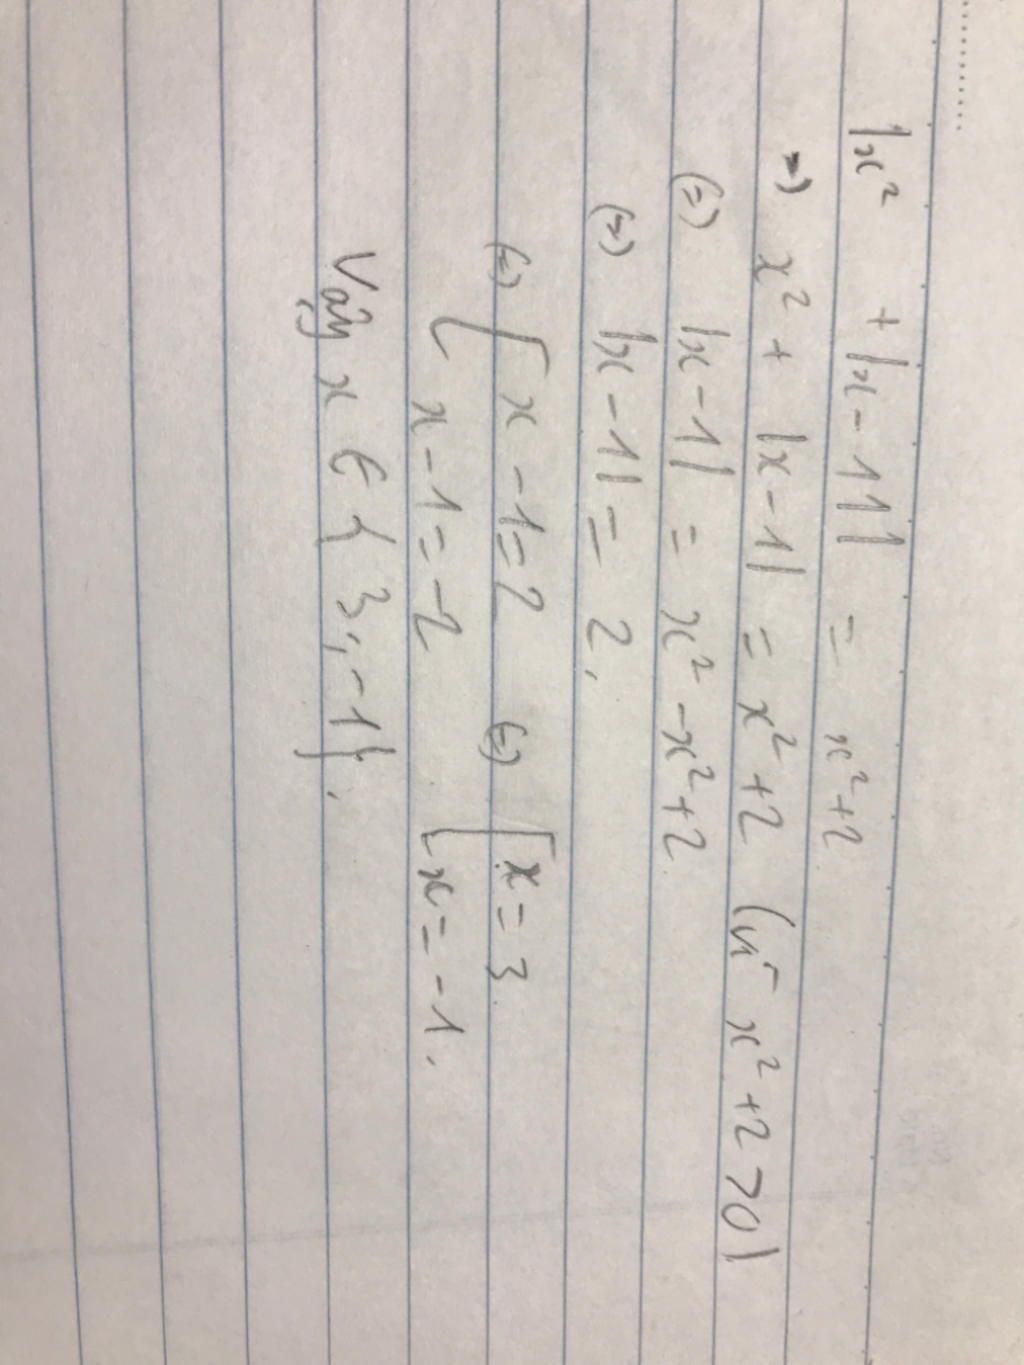 |x² + |x-1|| = x²+2
=> x² + |x-1| = x²+2 (vì x²+2>0)
(=) |x-1| = x²-x²+2
(=) |x-1| = 2.
(=) [ x-1=2 (=) [ x=3
x-1=-2 x=-1.
Vậy x ∈ { 3; -1}.